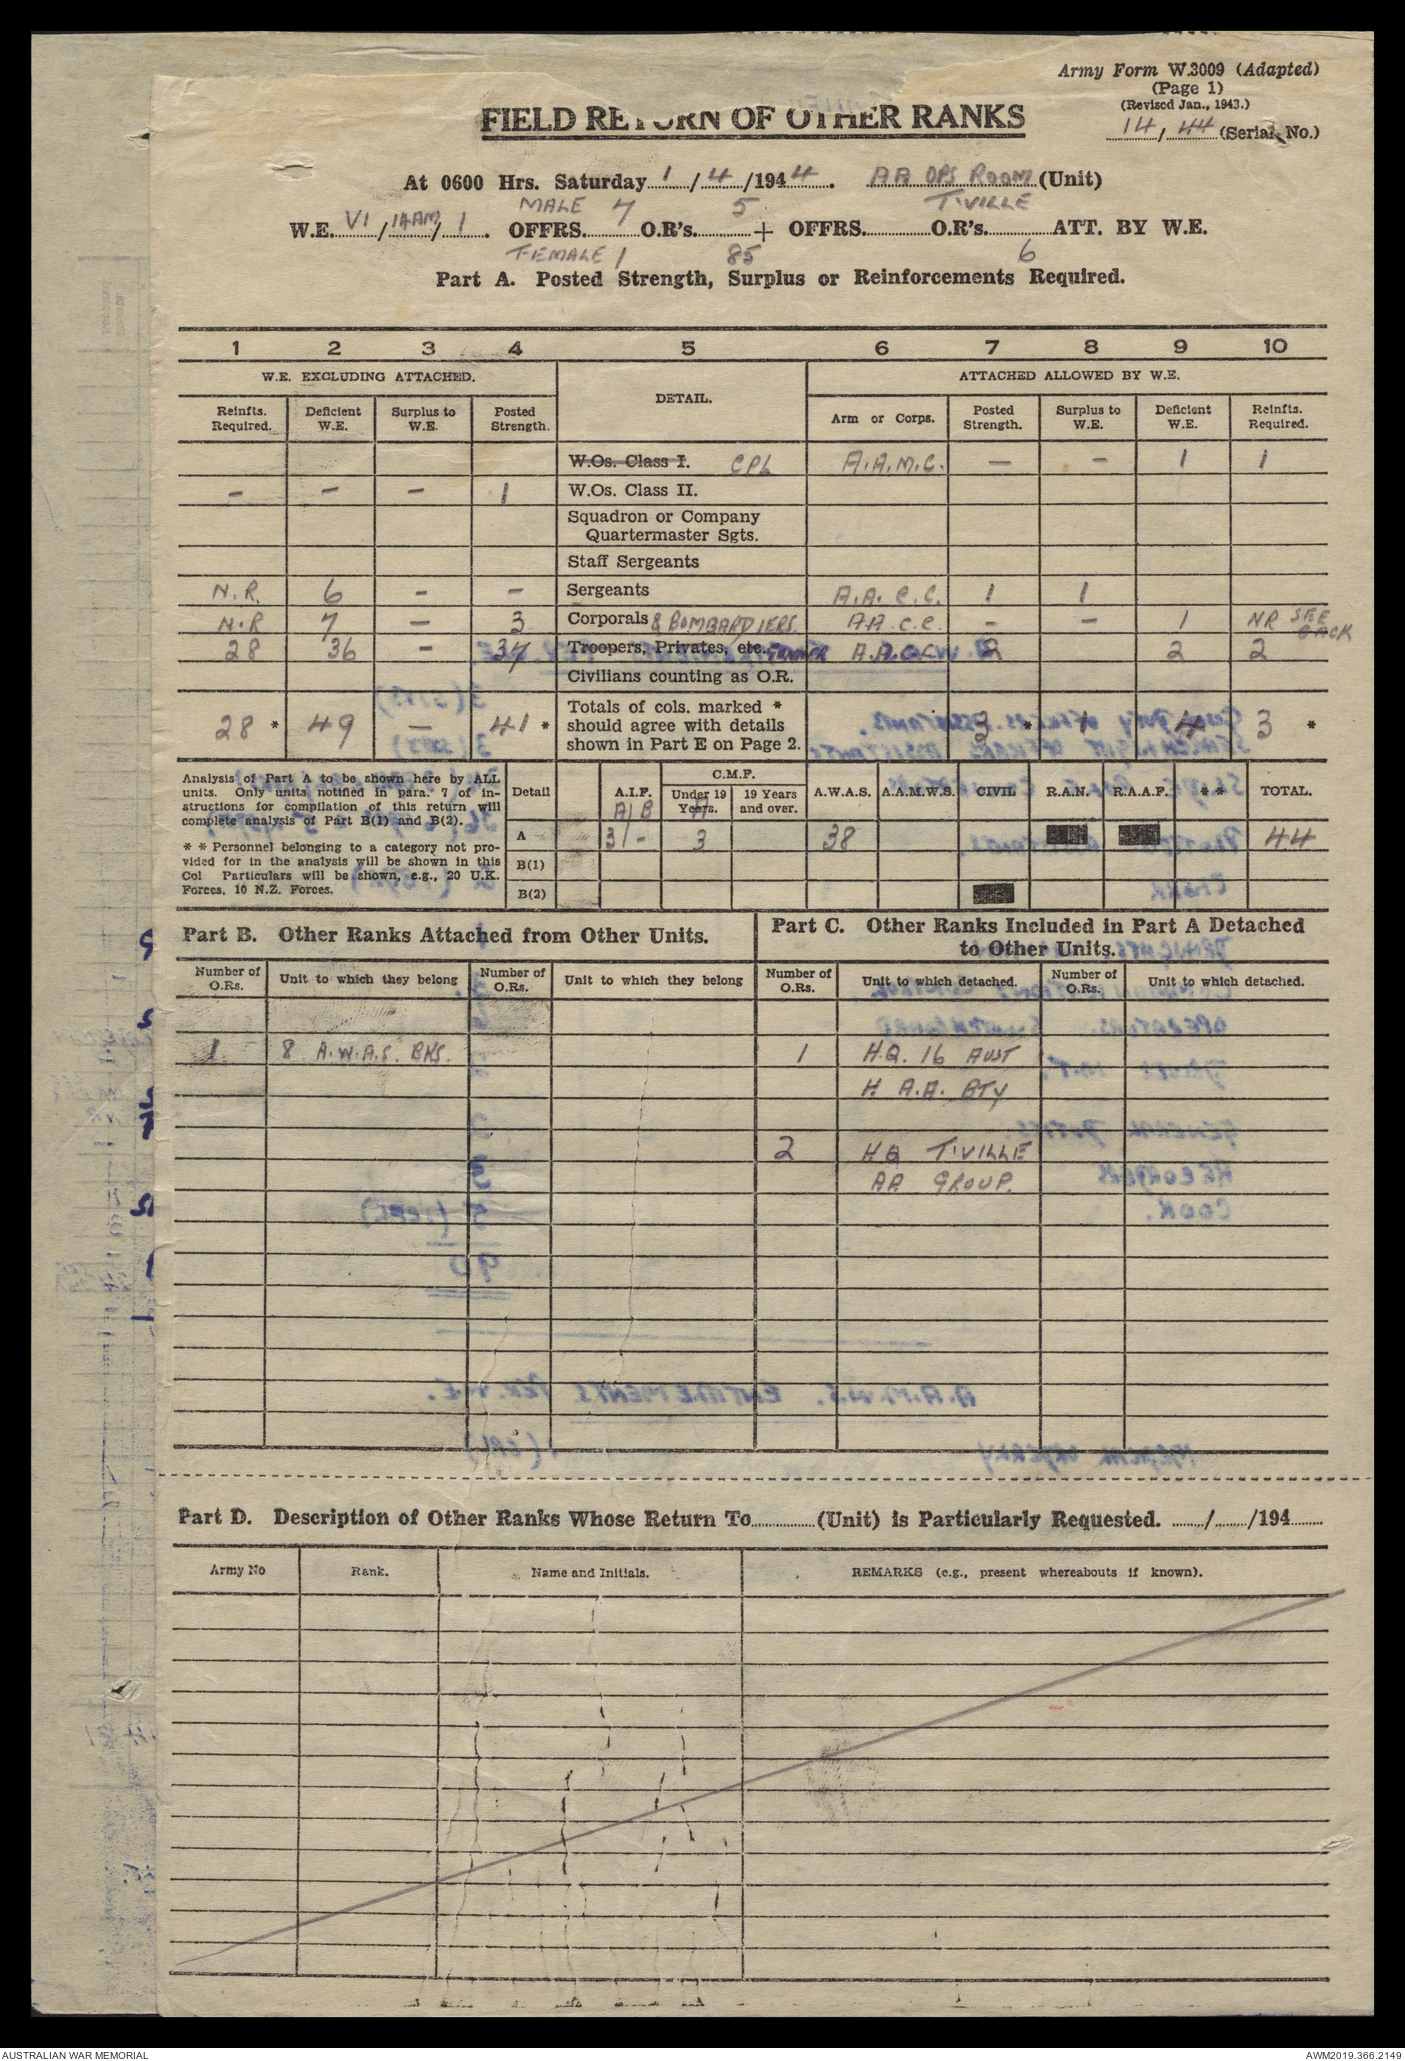 Army Form W.3009 (Adapted)
(Page 1)
(Revised Jan., 1943.)
14/44 (Serial No.)
FIELD RETURN OF OTHER RANKS
At 0600 Hrs. Saturday 1/4/1944. AA OPS ROOM (Unit)
T'VILLE
MALE 7 5
W.E. VI/14AM/1. OFFRS. O.R's. + OFFRS. O.R's. ATT. BY W.E.
FEMALE 1 85 6
Part A. Posted Strength, Surplus or Reinforcements Required.
1 2 3 4 5 6 7 8 9 10
W.E. EXCLUDING ATTACHED. DETAIL. ATTACHED ALLOWED BY W.E.
Reinfts. Required. Deficient W.E. Surplus to W.E. Posted Strength. Arm or Corps. Posted Strength. Surplus to W.E. Deficient W.E. Reinfts. Required.
W.Os. Class I. CPL A.A.M.C. — — 1 1
– – – 1 W.Os. Class II.
Squadron or Company
Quartermaster Sgts.
Staff Sergeants
N.R. 6 – – Sergeants A.A.C.C. 1 1
N.R 7 – 3 Corporals & BOMBARDIERS. AA.C.C. – – 1 NR SEE BACK
28 36 – 37 Troopers, Privates, etc. GUNNER A.A.C.C. 2 2 2
Civilians counting as O.R.
28 * 49 — 41 * Totals of cols. marked *
should agree with details
shown in Part E on Page 2. 3 * 1 4 3 *
Analysis of Part A to be shown here by ALL
units. Only units notified in para. 7 of in-
structions for compilation of this return will
complete analysis of Part B(1) and B(2).
* * Personnel belonging to a category not pro-
vided for in the analysis will be shown in this
Col Particulars will be shown, e.g., 20 U.K.
Forces, 10 N.Z. Forces.
C.M.F.
Detail A.I.F. Under 19 Years. 19 Years and over. A.W.A.S. A.A.M.W.S. CIVIL R.A.N. R.A.A.F. * * TOTAL.
A B A
A 3 – 3 38 44
B(1)
B(2)
Part B. Other Ranks Attached from Other Units.
Part C. Other Ranks Included in Part A Detached
to Other Units.
Number of O.Rs. Unit to which they belong Number of O.Rs. Unit to which they belong Number of O.Rs. Unit to which detached. Number of O.Rs. Unit to which detached.
1 8 A.W.A.S. BKS. 1 H.Q. 16 AUST
H A.A. BTY
2 HQ T'VILLE
AA GROUP.
Part D. Description of Other Ranks Whose Return To (Unit) is Particularly Requested. / /194
Army No Rank. Name and Initials. REMARKS (e.g., present whereabouts if known).
AUSTRALIAN WAR MEMORIAL AWM2019.366.2149